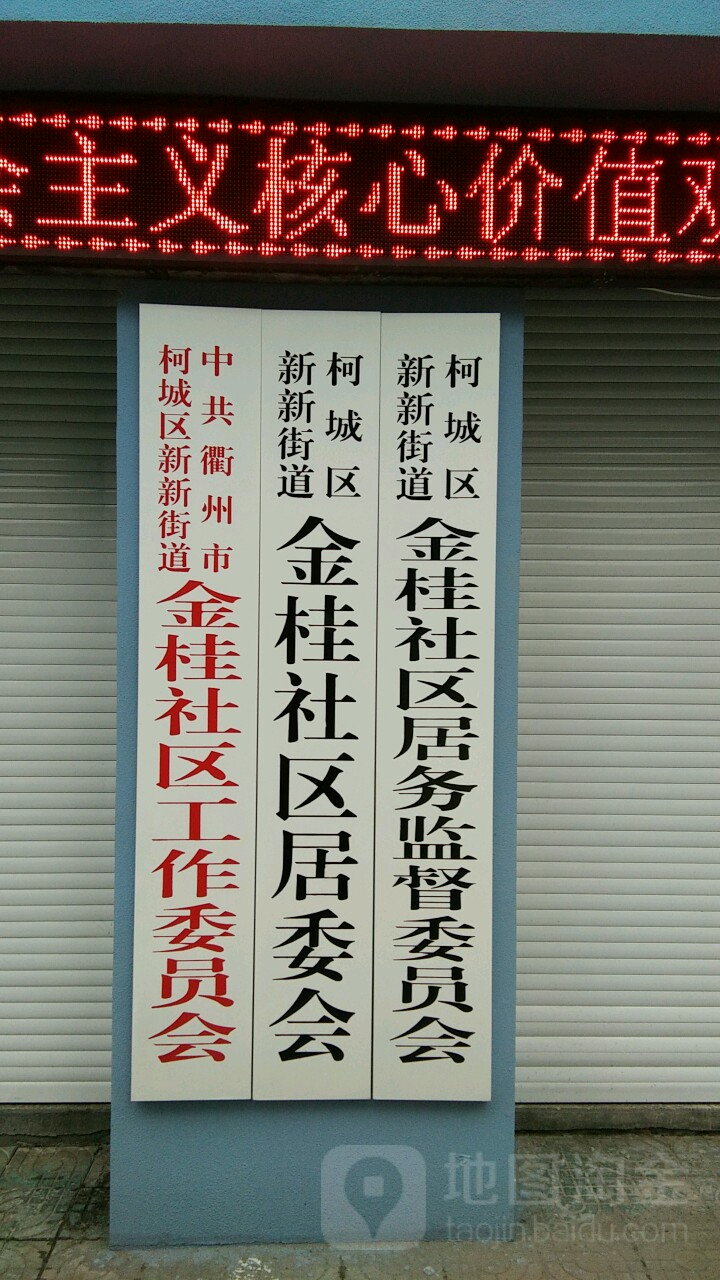 会主义核心价值观
中共衢州市
柯城区新新街道
金桂社区工作委员会
柯城区
新新街道
金桂社区居委会
柯城区
新新街道
金桂社区居务监督委员会
地图淘金
taojin.baidu.com